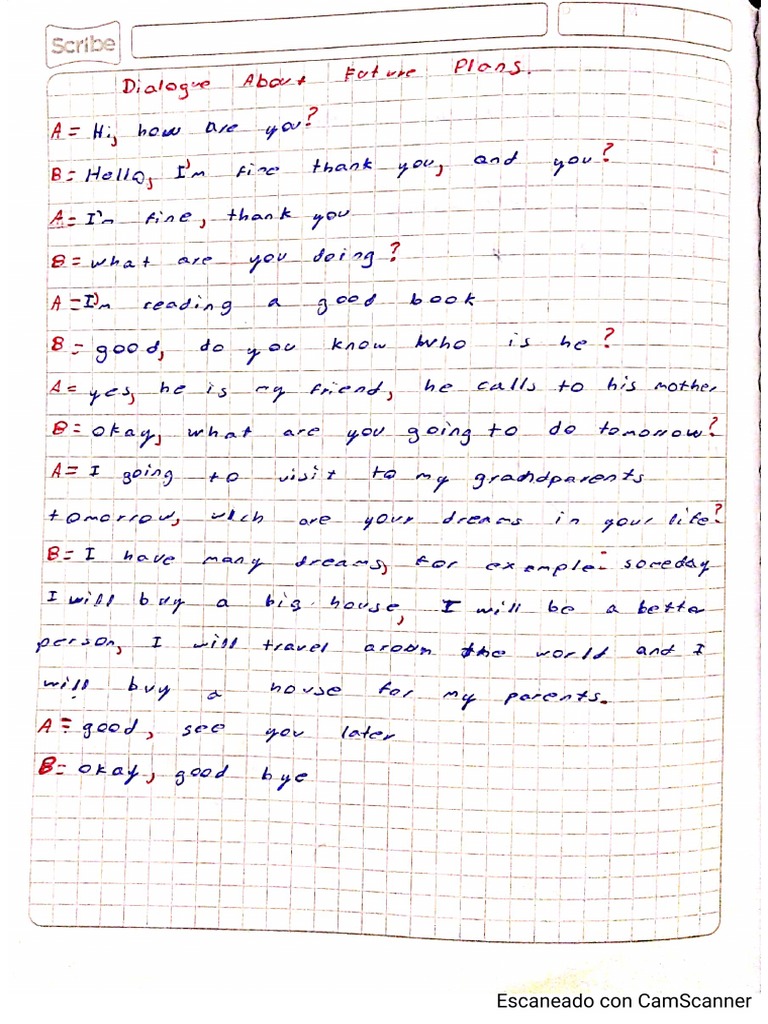 Scribe
Dialogue About Future Plans.
A= Hi, how are you?
B= Hello, I'm fine thank you, and you?
A= I'm fine, thank you
B= what are you doing?
A= I'm reading a good book
B= good, do you know who is he?
A= yes, he is my friend, he calls to his mother
B= okay, what are you going to do tomorrow?
A= I going to visit to my grandparents
tomorrow, wich are your dreams in your life?
B= I have many dreams, for exemple: someday
I will buy a big house, I will be a better
person, I will travel aroun the world and I
will buy a house for my parents.
A= good, see you later
B= okay, good bye
Escaneado con CamScanner